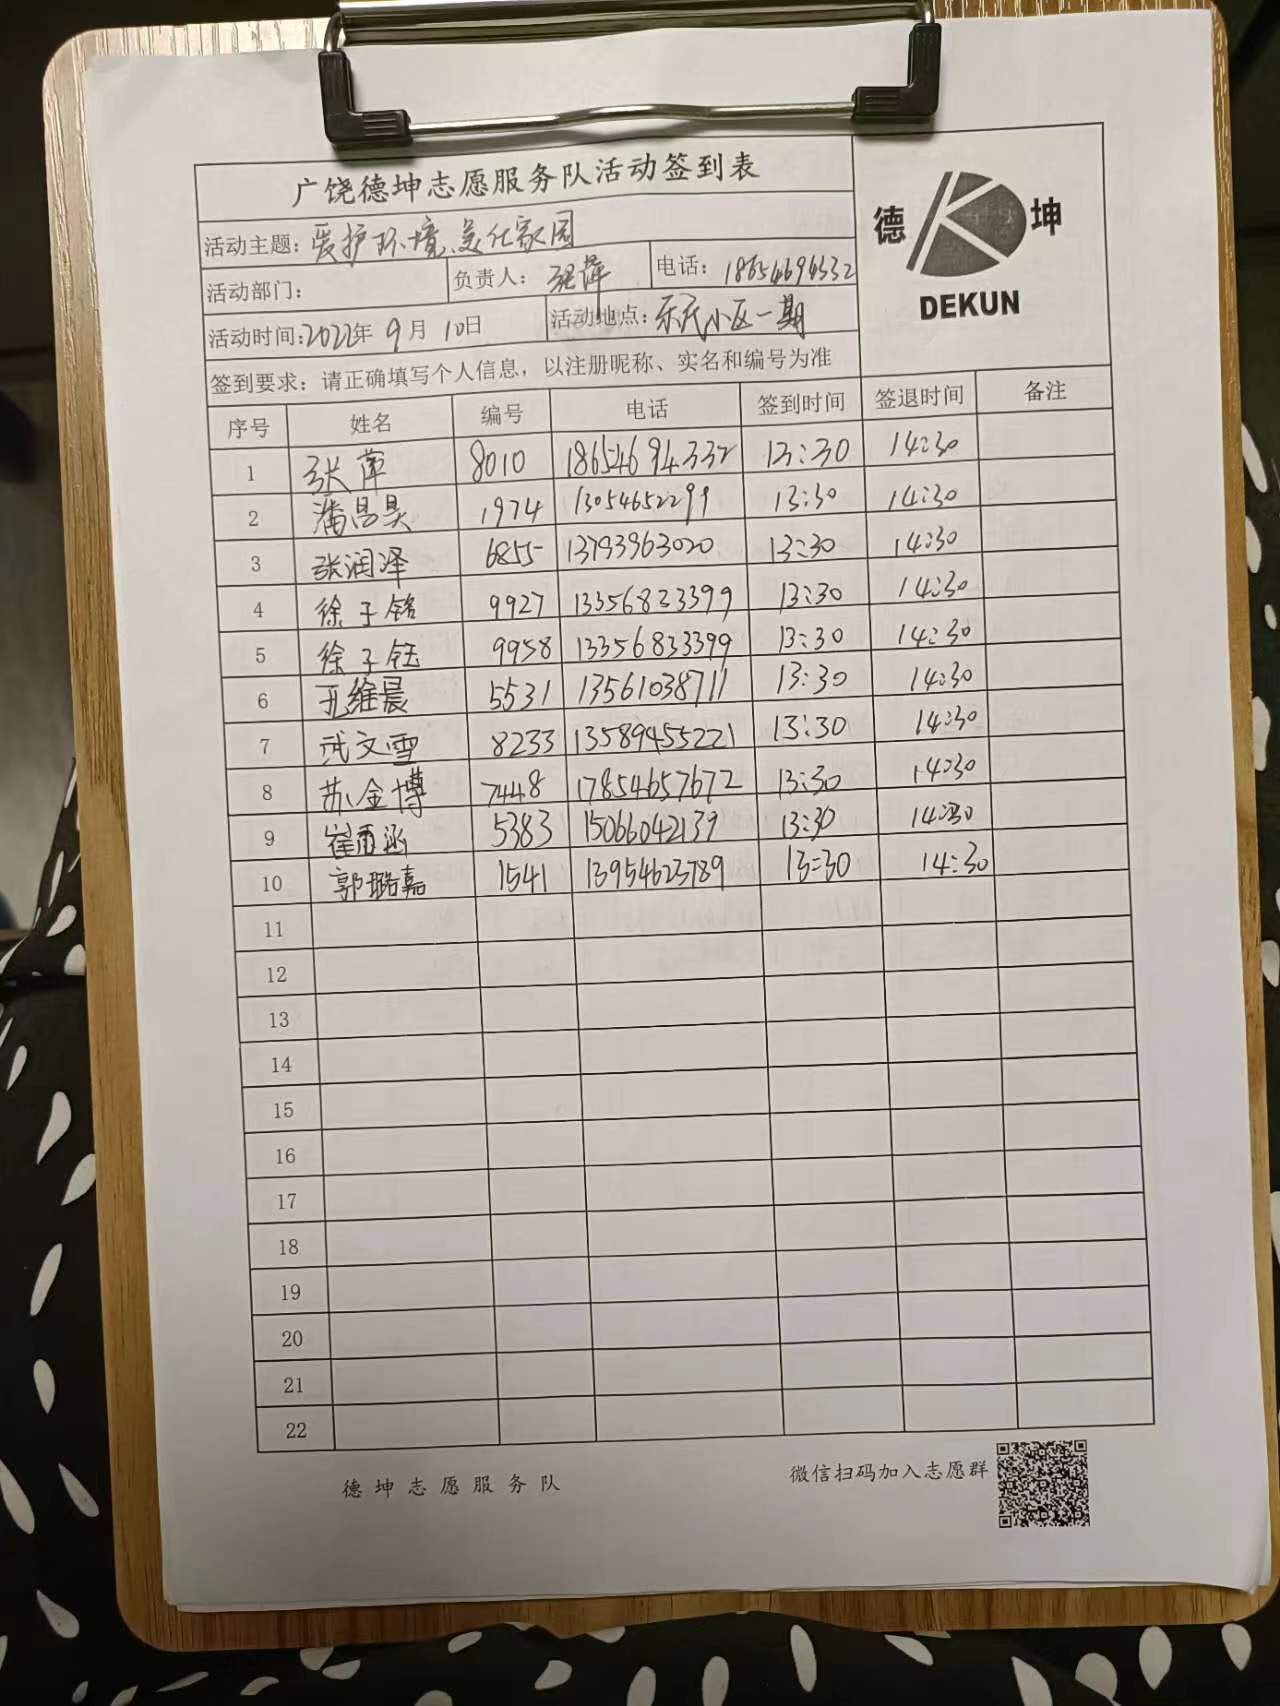 广饶德坤志愿服务队活动签到表
德 坤
DEKUN
活动主题：爱护环境、美化家园
活动部门： 负责人：张萍 电话：18654694332
活动时间：2022年 9月 10日 活动地点：乐民小区一期
签到要求：请正确填写个人信息，以注册昵称、实名和编号为准
序号 姓名 编号 电话 签到时间 签退时间 备注
1 张萍 8010 18654694332 13:30 14:30
2 潘昌昊 1974 13054652299 13:30 14:30
3 张润泽 6855 13793963020 13:30 14:30
4 徐子铭 9927 13356833399 13:30 14:30
5 徐子钰 9958 13356833399 13:30 14:30
6 孔维晨 5531 13561038711 13:30 14:30
7 武文雪 8233 13589455221 13:30 14:30
8 苏金博 7448 17854657672 13:30 14:30
9 崔雨涵 5383 15066042139 13:30 14:30
10 郭璐嘉 1541 13954623789 13:30 14:30
11
12
13
14
15
16
17
18
19
20
21
22
德坤志愿服务队 微信扫码加入志愿群